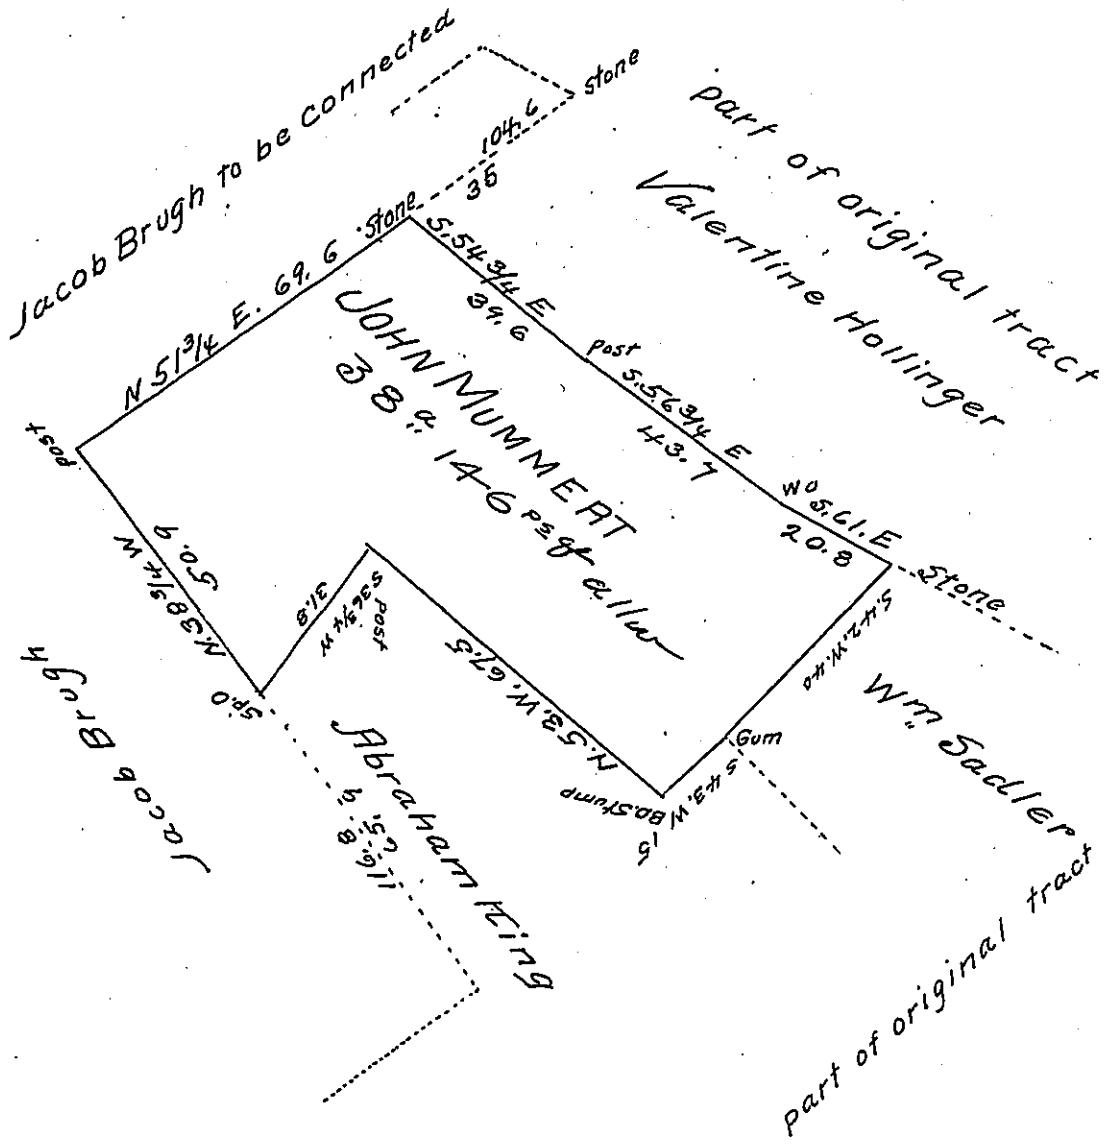 Jacob Brugh to be connected
stone
104.6
35
part of original tract
Valentine Hollinger
N 51 3/4 E. 69.6
Stone
S. 54 3/4 E
39.6
post
S. 56 3/4 E
43.7
W O
S. 61. E
20.8
Stone
JOHN MUMMERT
38 a 146 ps & allw
post
N. 38 3/4 W
50.9
31.8
S 36 3/4 W
post
Sp. O
N. 53. W. 67.5
S. 42. W. 40
Gum
S 43. W
15
B O. Stump
Wm Sadler
Jacob Brugh
Abraham King
65.9
116.8
part of original tract